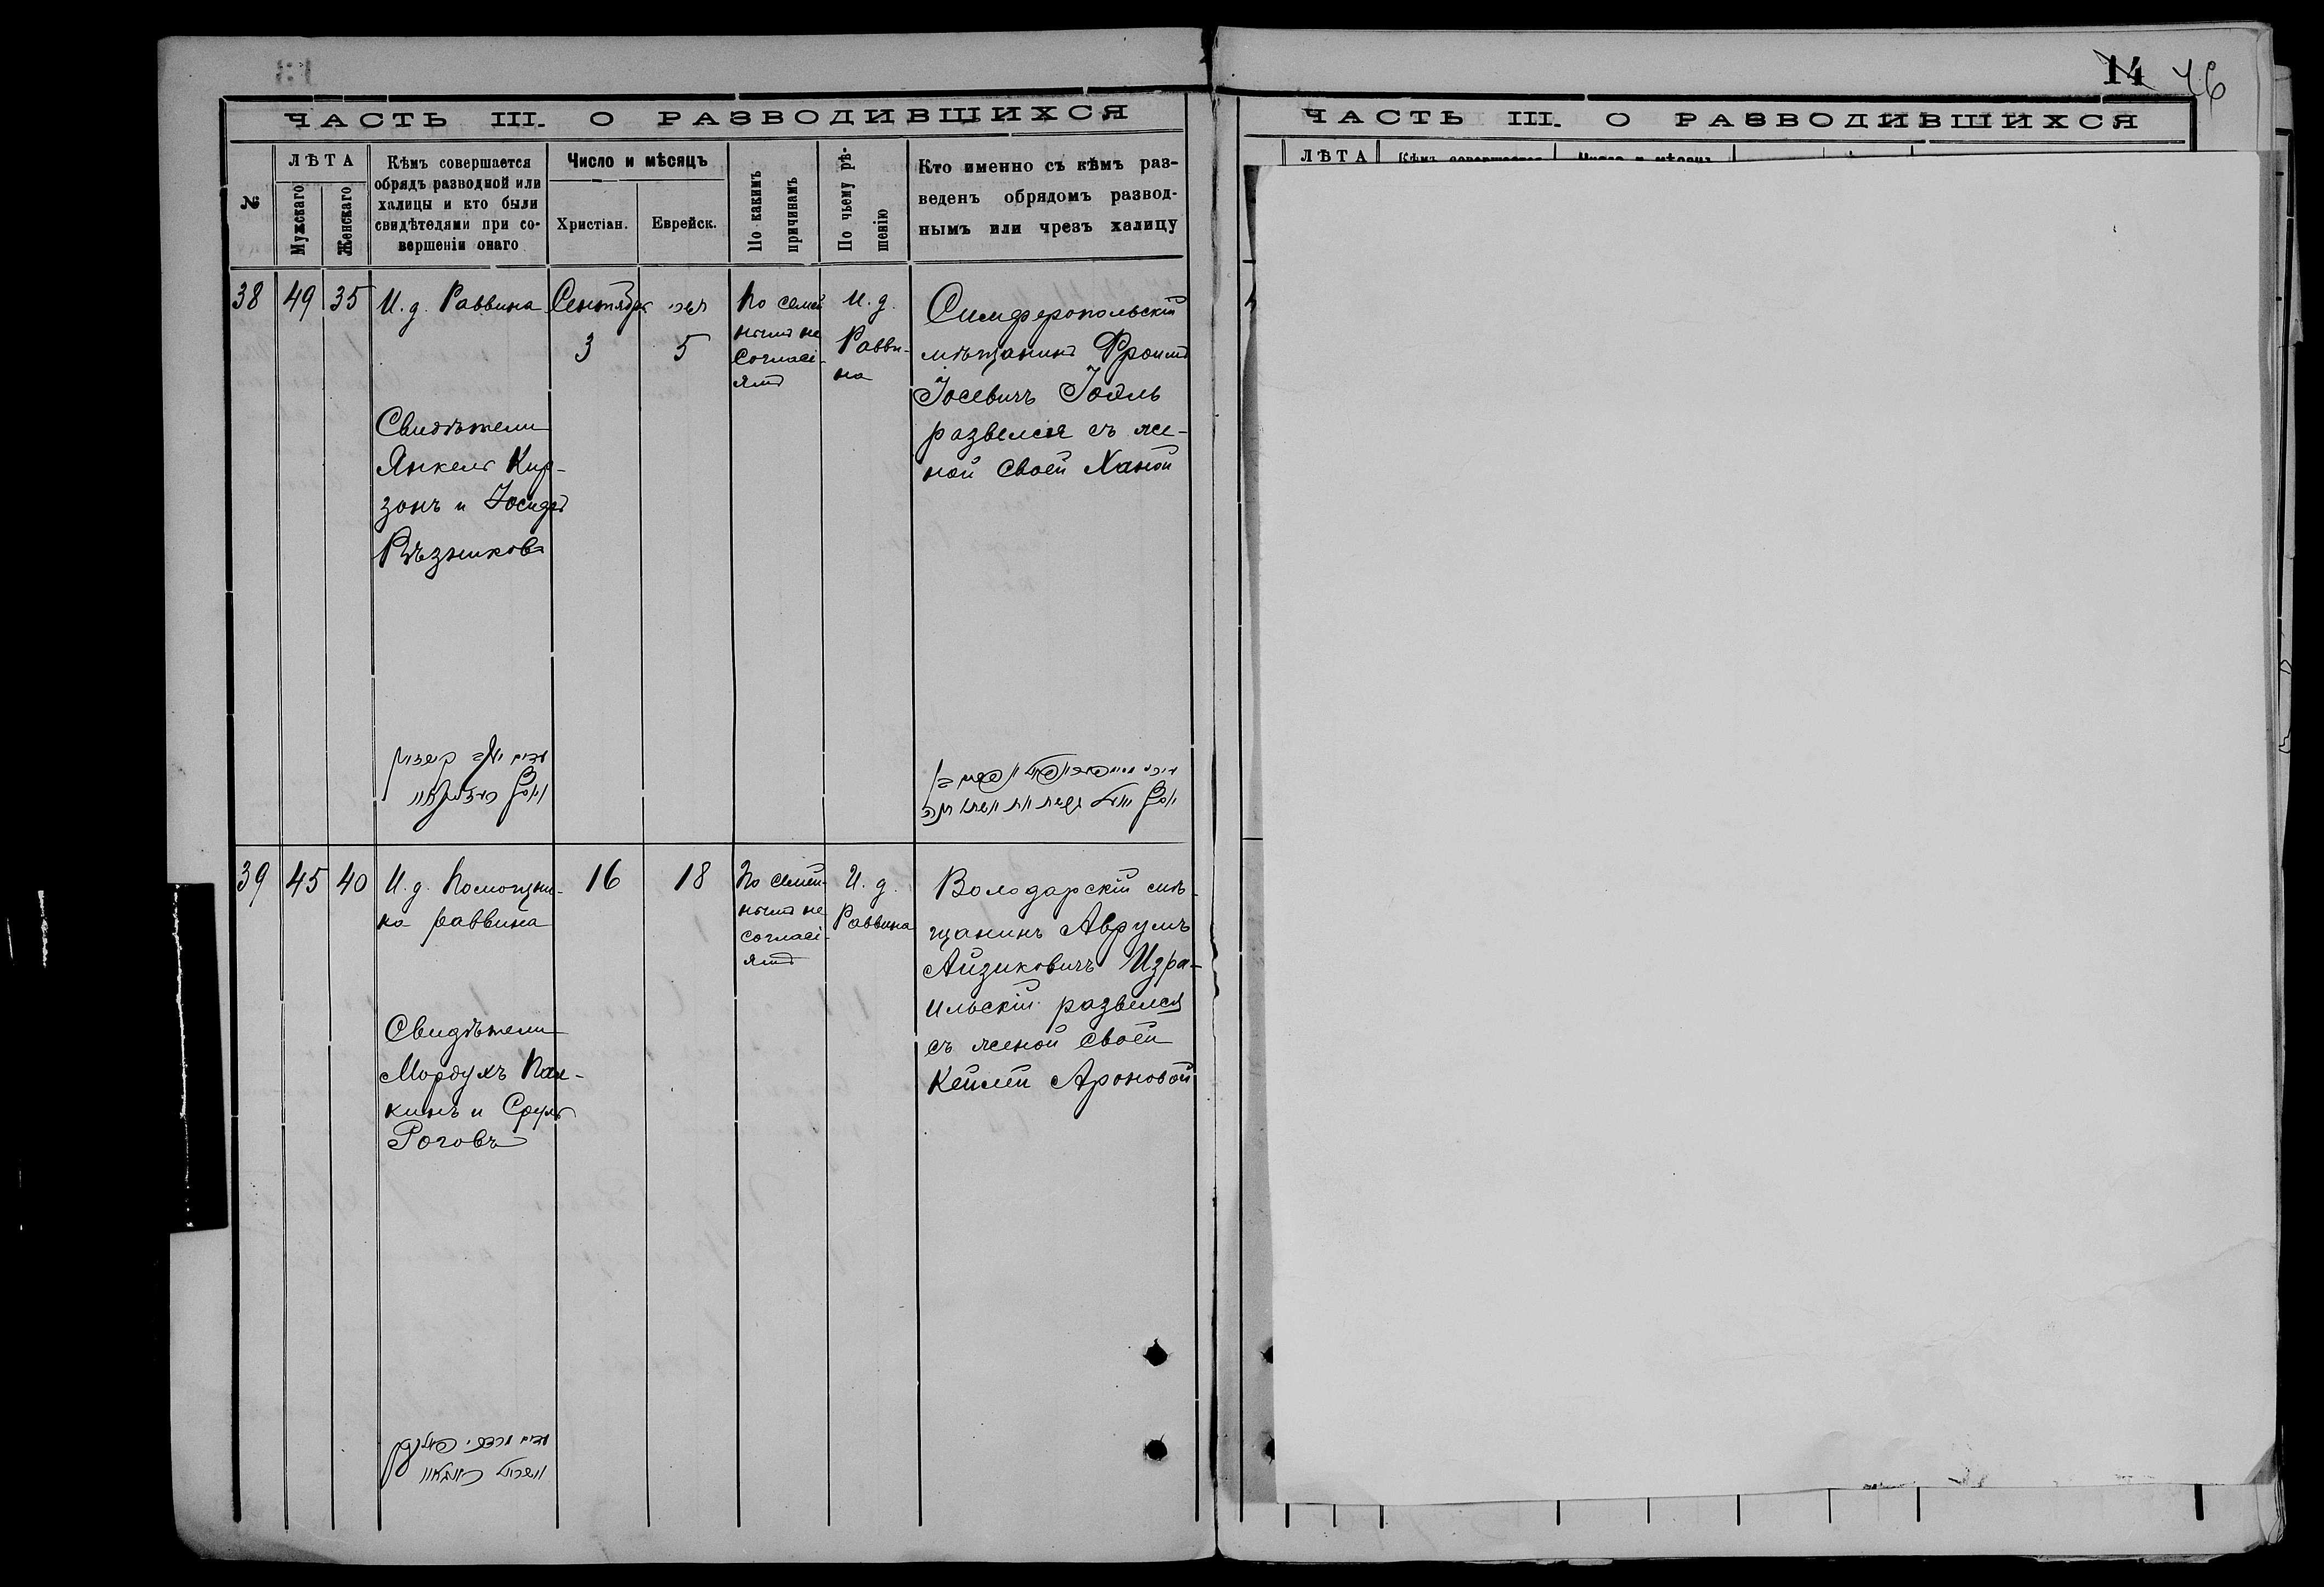 14 46
ЧАСТЬ III. О РАЗВОДИВШИХСЯ
№
ЛѢТА
Мужскаго
Женскаго
Кѣмъ совершается
обрядъ разводной или
халицы и кто были
свидѣтелями при со-
вершеніи онаго
Число и мѣсяцъ
Христіан.
Еврейск.
По какимъ
причинамъ
По чьему рѣ-
шенію
Кто именно съ кѣмъ раз-
веденъ обрядомъ развод-
нымъ или чрезъ халицу
38
49
35
И. д. Раввина
Свидѣтели
Янкель Кир-
зонъ и Іосифъ
Рѣзников
Сентября
3
5
По семей
нымъ не
согласі-
ямъ
И. д.
Равви-
на
Симферопольскій
мѣщанинъ Фроимъ
Іосевичъ Іоэль
развелся съ же-
ной своей Ханой
39
45
40
И. д. Помощни-
ка раввина
Свидѣтели
Мордухъ Пал-
кинъ и Сруль
Роговъ
16
18
По семей-
нымъ не
согласі-
ямъ
И. д.
Раввина
Володарскій мѣ-
щанинъ Аврумъ
Айзиковичъ Изра-
ильскій развелся
съ женой своей
Кейлей Ароновой
ЧАСТЬ III. О РАЗВОДИВШИХСЯ
ЛѢТА